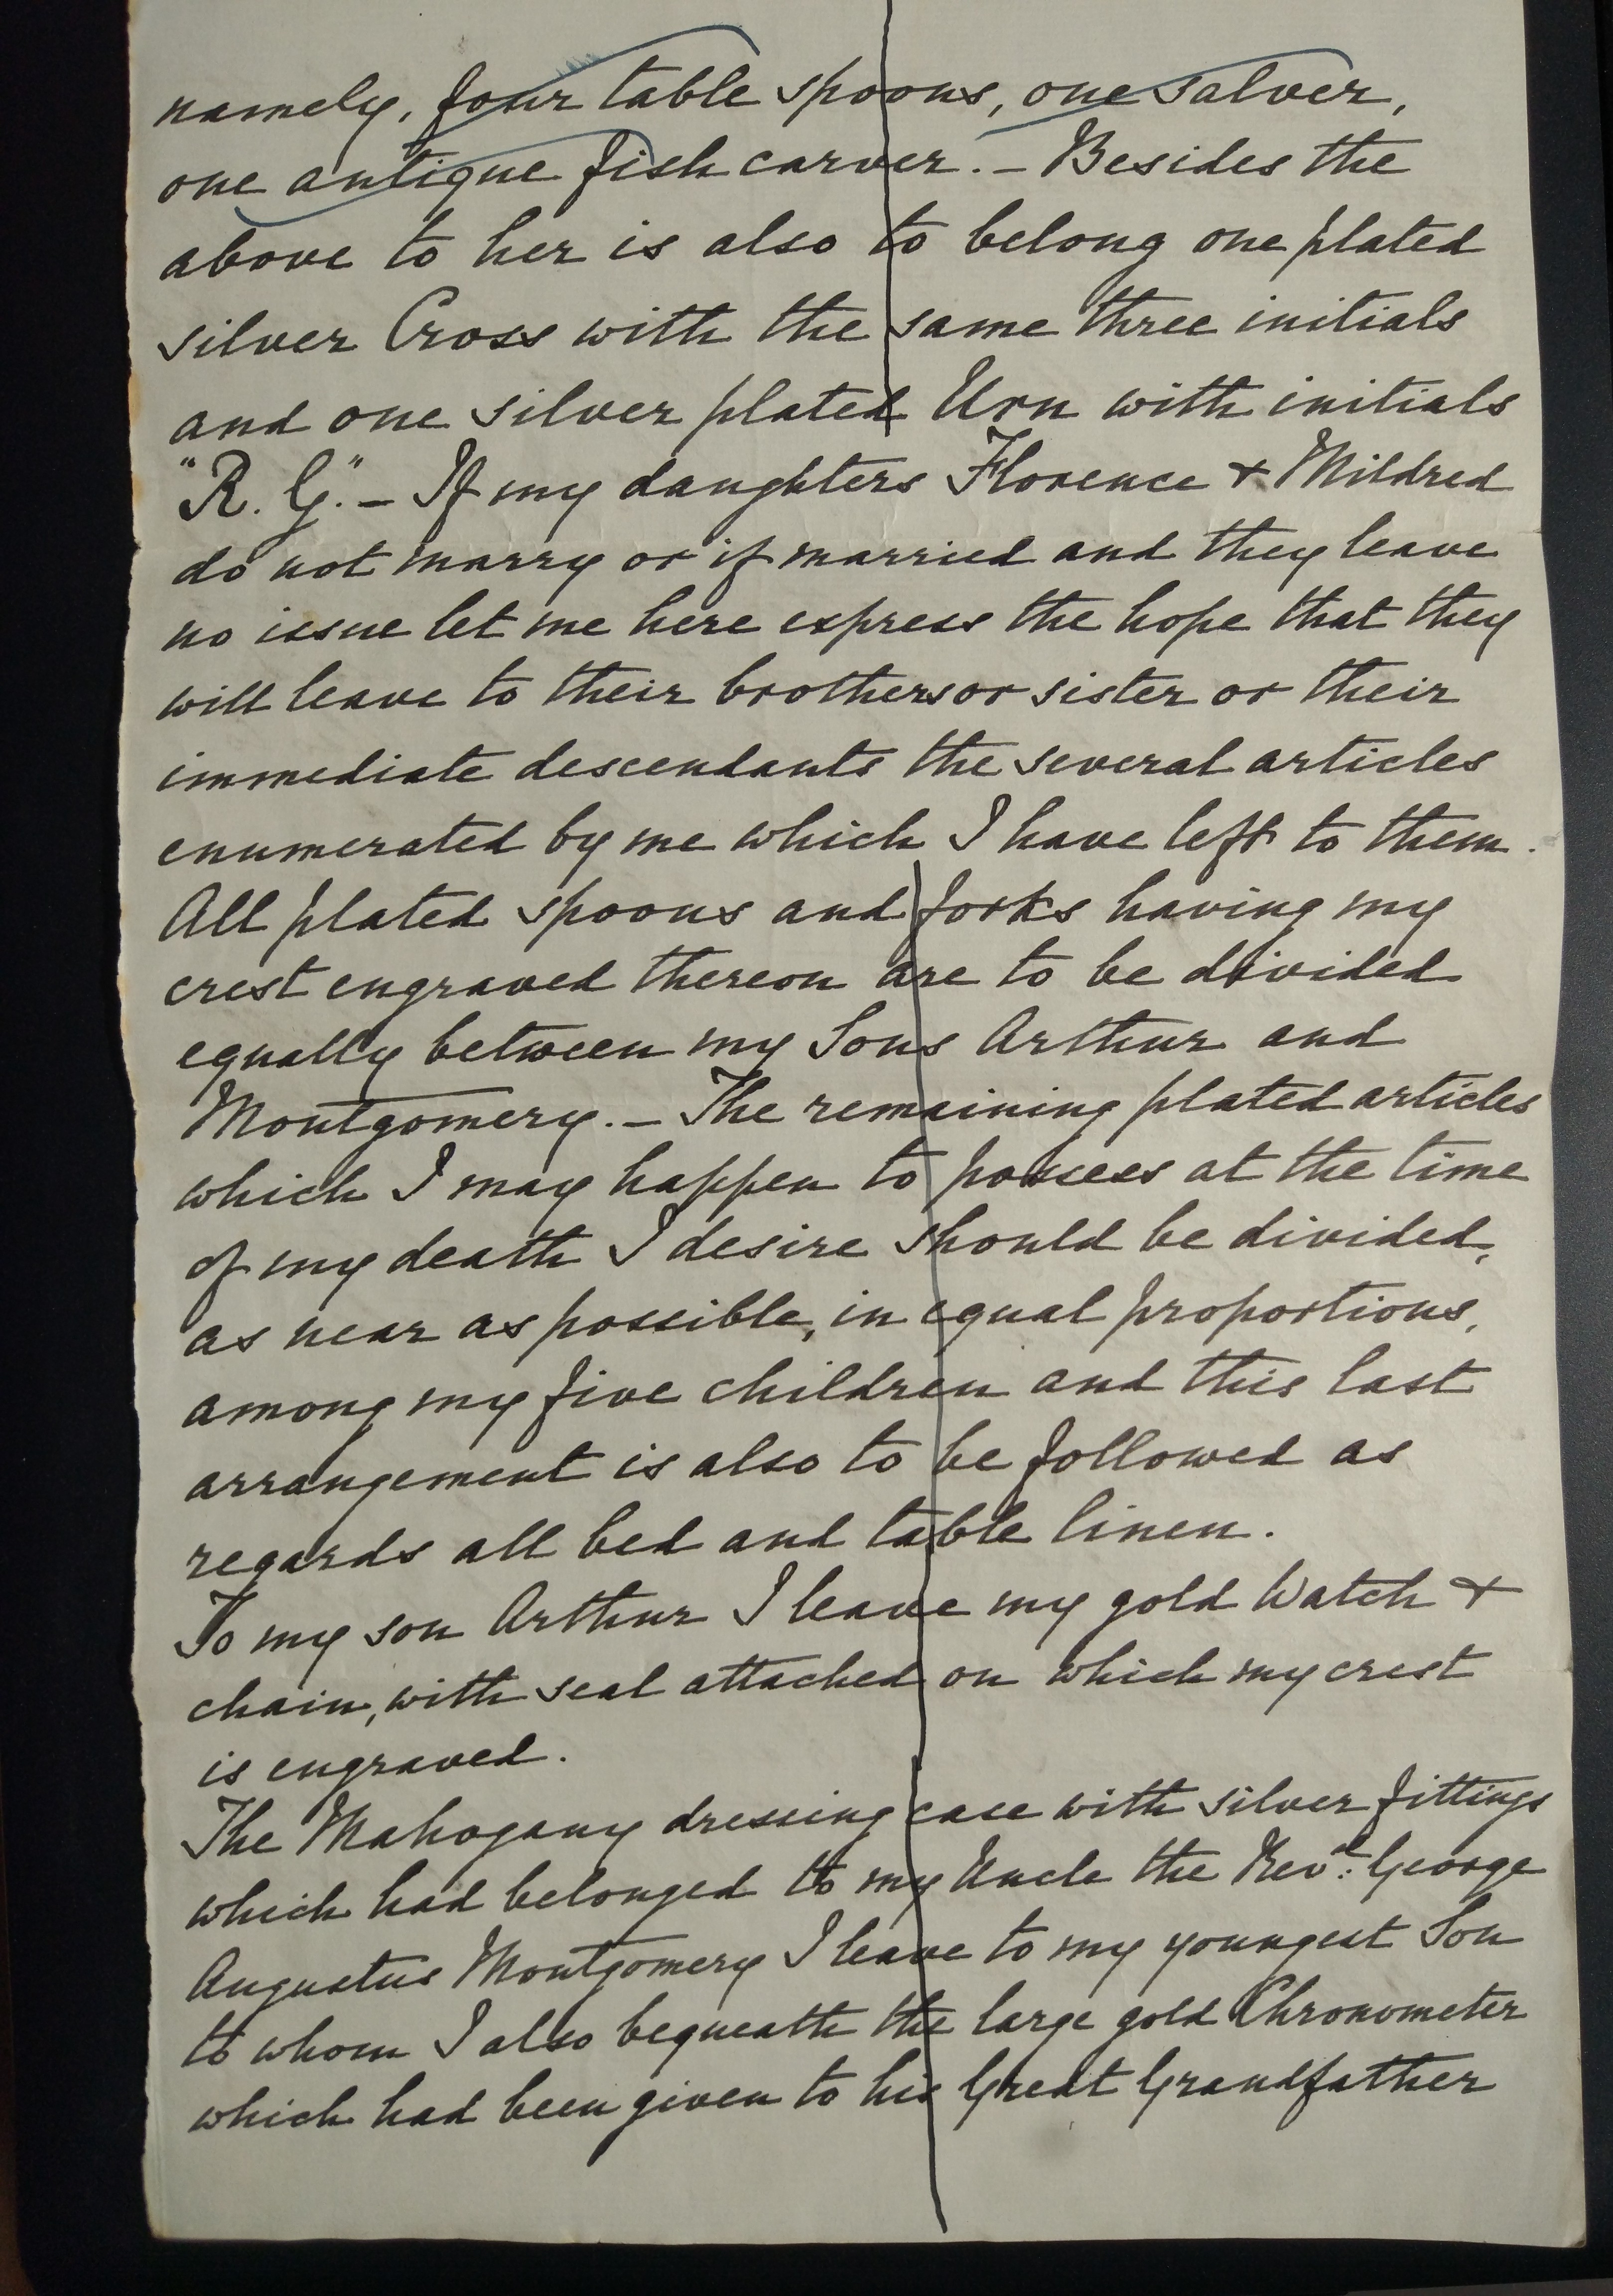 namely, four table spoons, one salver,
one antique fish carver. – Besides the
above to her is also to belong one plated
silver Cross with the same three initials
and one silver plated Urn with initials
"R. G." – If my daughters Florence & Mildred
do not marry or if married and they leave
no issue let me here express the hope that they
will leave to their brothers or sister or their
immediate descendants the several articles
enumerated by me which I have left to them.
All plated spoons and forks having my
crest engraved thereon are to be divided
equally between my Sons Arthur and
Montgomery. – The remaining plated articles
which I may happen to possess at the time
of my death I desire should be divided,
as near as possible, in equal proportions,
among my five children and this last
arrangement is also to be followed as
regards all bed and table linen.
To my son Arthur I leave my gold Watch &
chain, with seal attached on which my crest
is engraved.
The Mahogany dressing case with silver fittings
which had belonged to my Uncle the Revd. George
Augustus Montgomery I leave to my youngest Son
to whom I also bequeath the large gold Chronometer
which had been given to his Great Grandfather